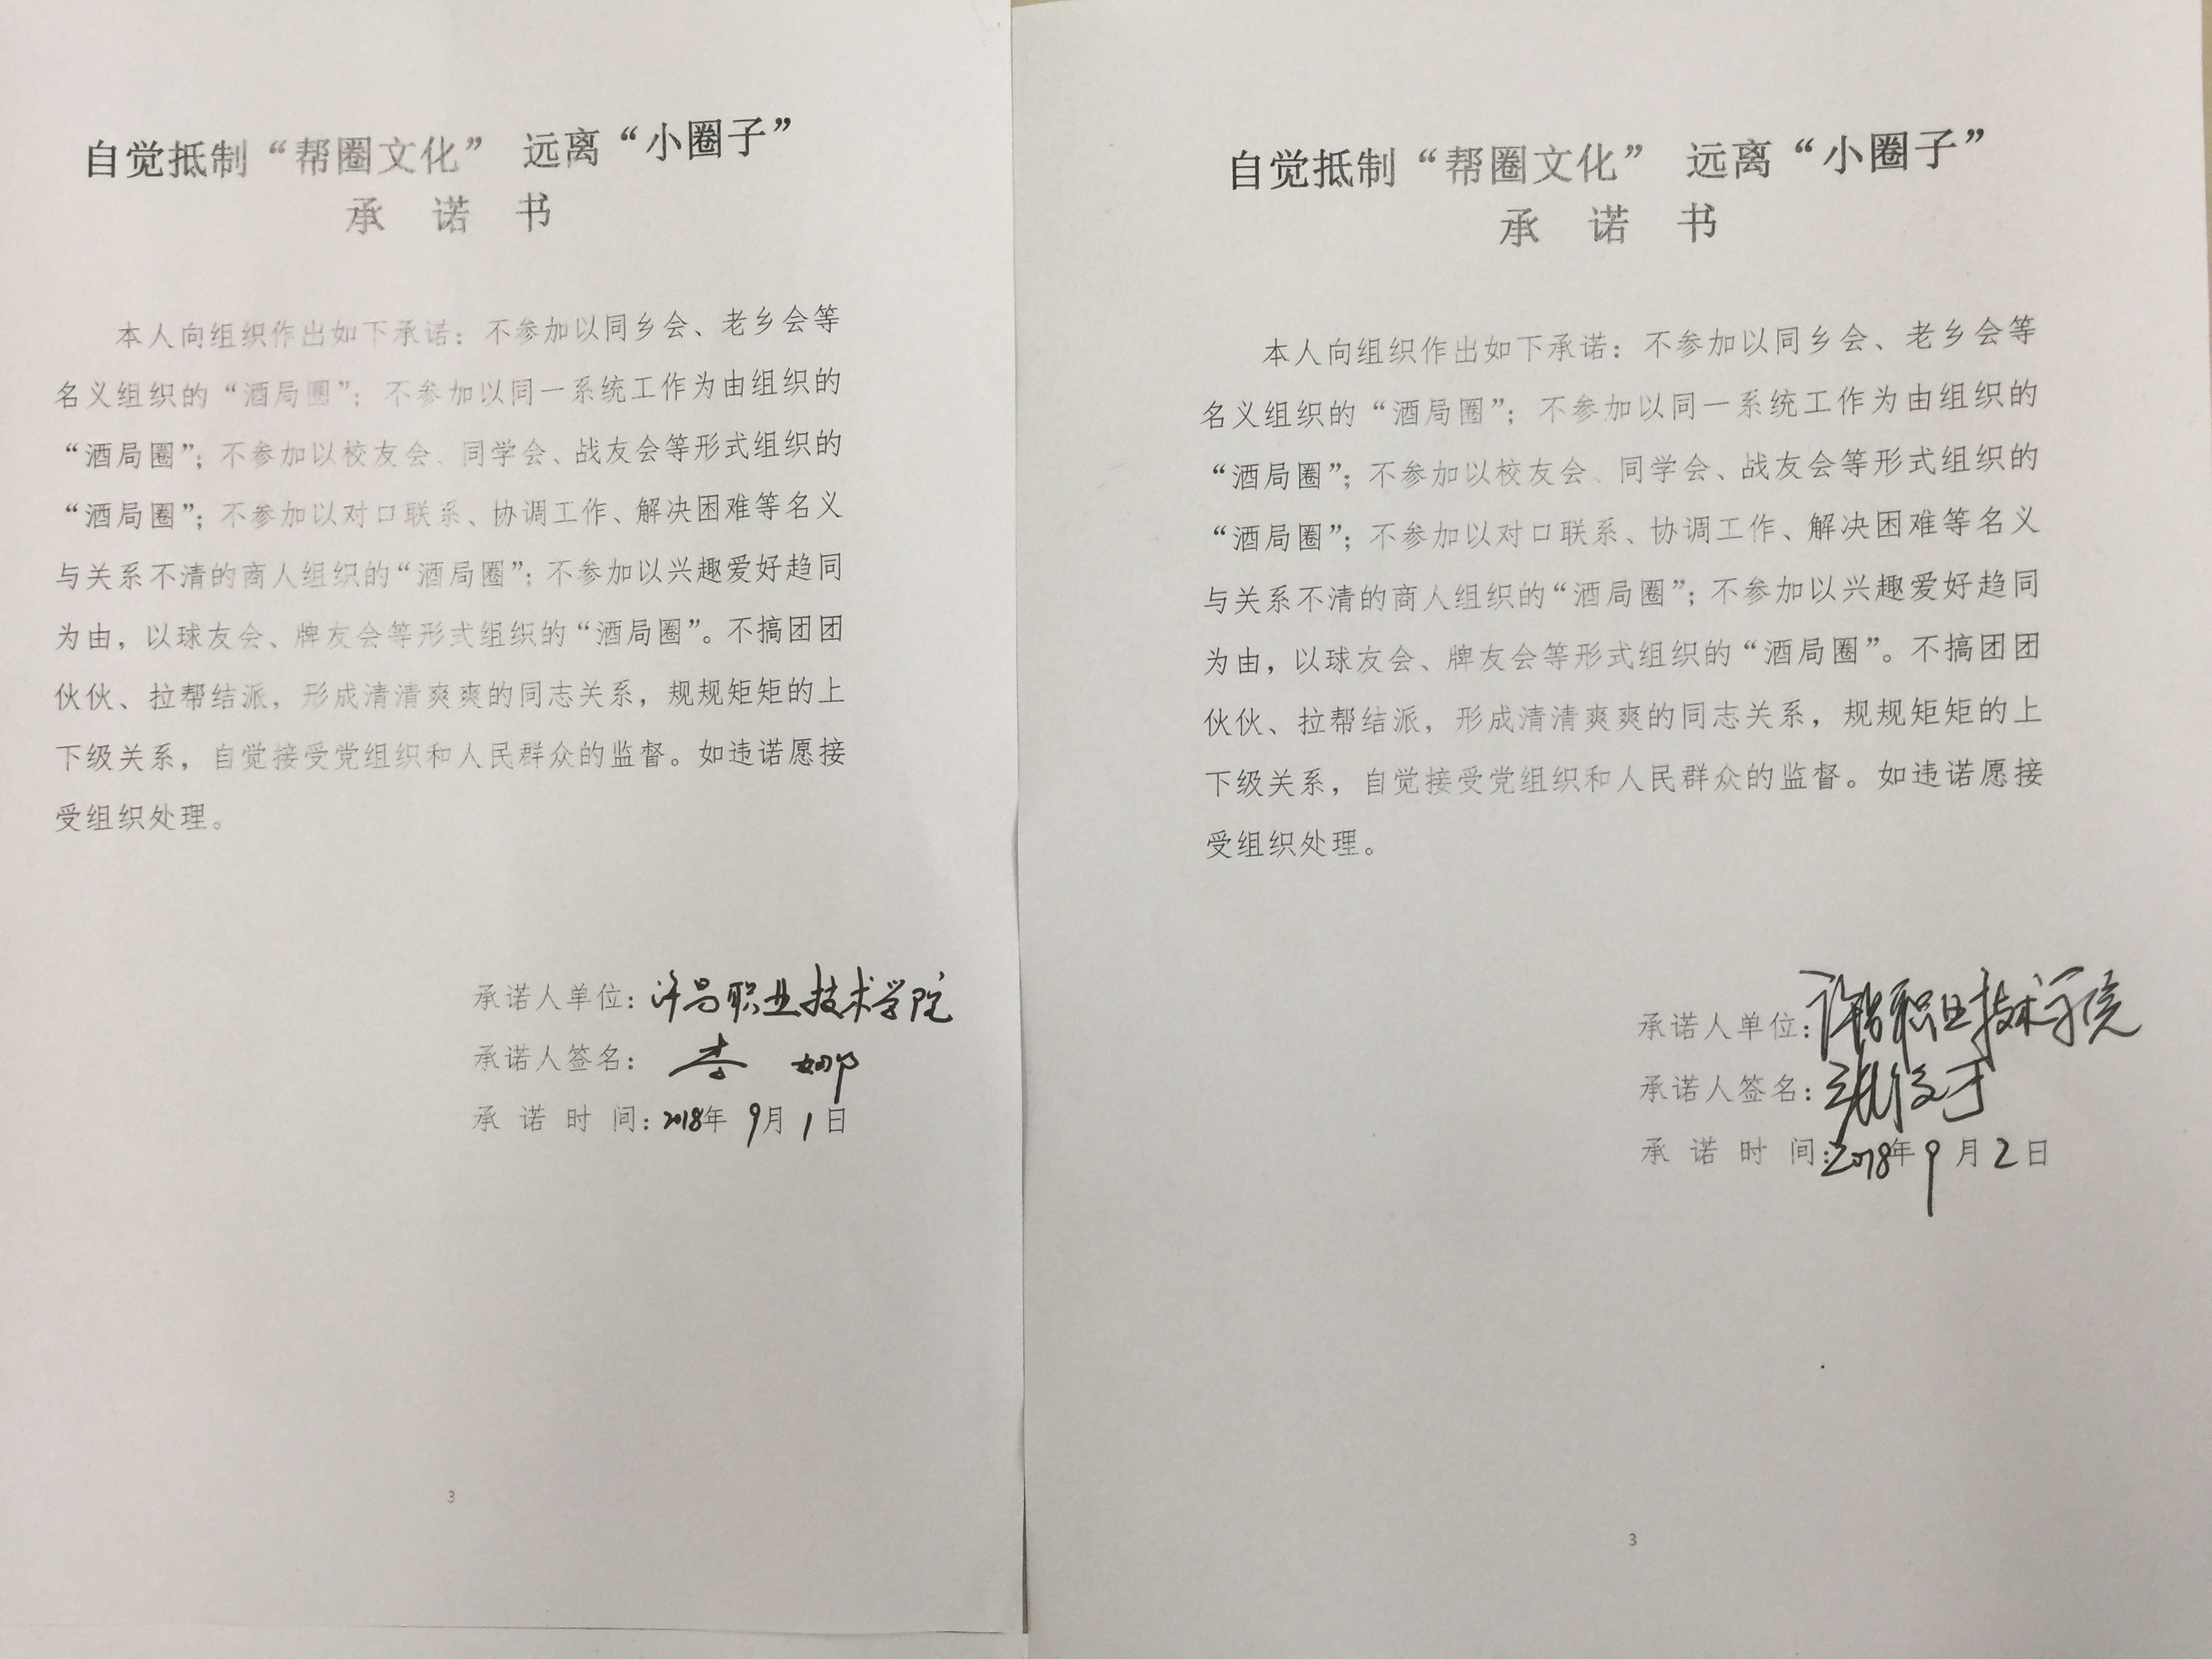 自觉抵制“帮圈文化” 远离“小圈子”
承 诺 书
本人向组织作出如下承诺：不参加以同乡会、老乡会等
名义组织的“酒局圈”；不参加以同一系统工作为由组织的
“酒局圈”；不参加以校友会、同学会、战友会等形式组织的
“酒局圈”；不参加以对口联系、协调工作、解决困难等名义
与关系不清的商人组织的“酒局圈”；不参加以兴趣爱好趋同
为由，以球友会、牌友会等形式组织的“酒局圈”。不搞团团
伙伙、拉帮结派，形成清清爽爽的同志关系，规规矩矩的上
下级关系，自觉接受党组织和人民群众的监督。如违诺愿接
受组织处理。
承诺人单位：许昌职业技术学院
承诺人签名：李娜
承 诺 时 间：2018年 9月 1日
3
自觉抵制“帮圈文化” 远离“小圈子”
承 诺 书
本人向组织作出如下承诺：不参加以同乡会、老乡会等
名义组织的“酒局圈”；不参加以同一系统工作为由组织的
“酒局圈”；不参加以校友会、同学会、战友会等形式组织的
“酒局圈”；不参加以对口联系、协调工作、解决困难等名义
与关系不清的商人组织的“酒局圈”；不参加以兴趣爱好趋同
为由，以球友会、牌友会等形式组织的“酒局圈”。不搞团团
伙伙、拉帮结派，形成清清爽爽的同志关系，规规矩矩的上
下级关系，自觉接受党组织和人民群众的监督。如违诺愿接
受组织处理。
承诺人单位：许昌职业技术学院
承诺人签名：
承 诺 时 间：2018年 9月 2日
3